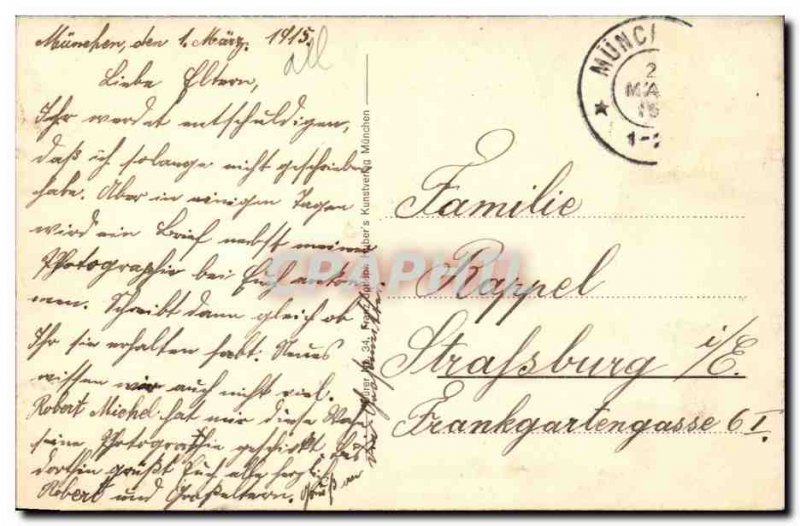 München, den 1. März. 1915.
Liebe Eltern,
Ihr werdet entschuldigen,
daß ich solange nicht geschrieben
habe. Aber in einigen Tagen
wird ein Brief nebst meiner
Photographie bei Euch ankom-
men. Schreibt dann gleich ob
Ihr sie erhalten habt. Neues
wissen wir auch nicht viel.
Robert Michel hat mir diese Woche
seine Photografie geschickt. Bis
dorthin grüßt Euch alle herzlich
Robert und Großeltern. Gruß an
die
Kunstverlag München
MÜNC
2
MÄ
15
1-
Familie
Rappel
Straßburg i/E.
Frankgartengasse 6 I.
CPAPHIL